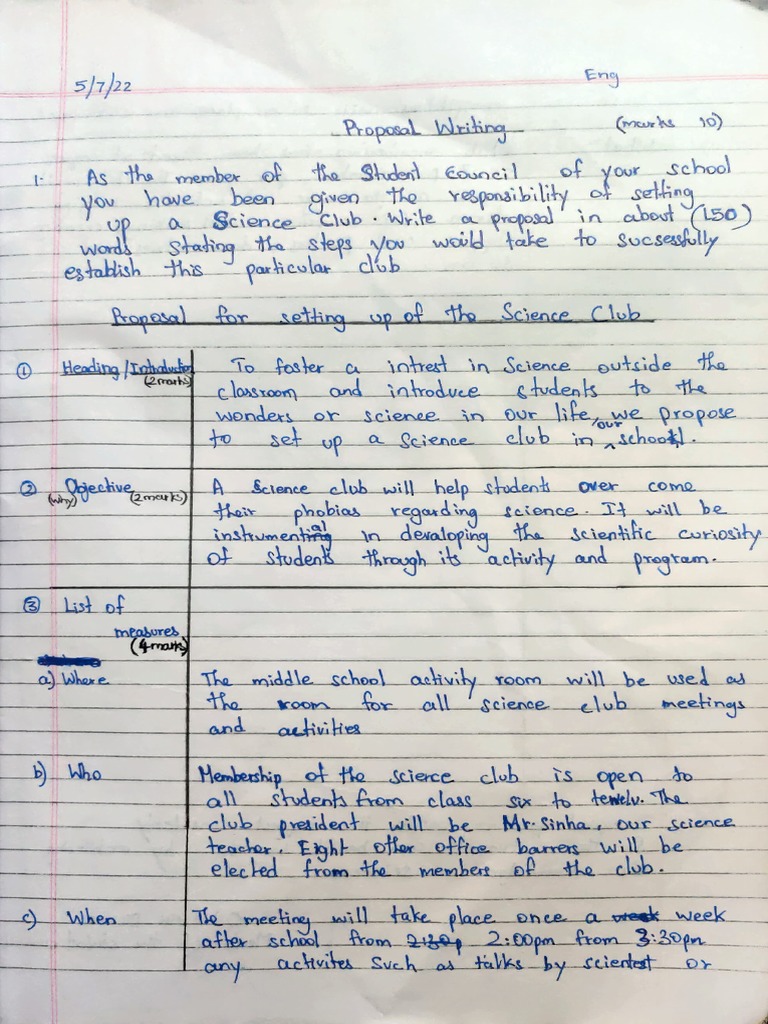 5/7/22
Eng
Proposal Writing (marks 10)
1. As the member of the Student Council of your school
you have been given the responsibility of setting
up a Science Club. Write a proposal in about (150)
words stating the steps you would take to sucsessfully
establish this particular club
Proposal for setting up of the Science Club
① Heading/Introduction (2marks) To foster a intrest in Science outside the
classroom and introduce students to the
wonders or science in our life, we propose
to set up a Science club in our school.
② Objective (why) (2marks) A Science club will help students over come
their phobias regarding science. It will be
instrumental in devaloping the scientific curiosity
of students through its activity and program.
③ List of
measures
(4 marks)
a) Where The middle school activity room will be used as
the room for all science club meetings
and activities
b) Who Membership of the science club is open to
all students from class six to tewelv. The
club president will be Mr. Sinha, our science
teacher. Eight other office barrers will be
elected from the members of the club.
c) When The meeting will take place once a week week
after school from 2:30p 2:00pm from 3:30pm
any activites such as talks by scientest or